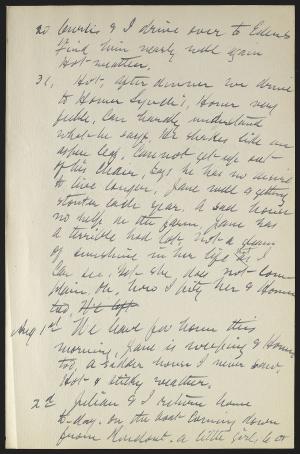 30 Curtis & I drive over to Edens
Find him nearly well again
Hot weather.
31, Hot, after dinner we drive
to Homer Lynch's, Homer very
feeble, can hardly understand
what he says. He shakes like an
aspen leaf, cannot get up out
of his chair, says he has no desire
to live longer, Jane well & getting
stouter each year. A sad house
no help on the farm, Jane has
a terrible hard lot. Not a gleam
of sunshine in her life as I
can see, yet she does not com
plain. Oh, how I pity her & Homer
too, He left
Aug 1st We leave for home this
morning, Jane is weeping & Homer
too, a sadder house I never saw
Hot & sticky weather.
2d Julian & I return home
to-day. on the boat coming down
from Rondout. a little girl, 6 or